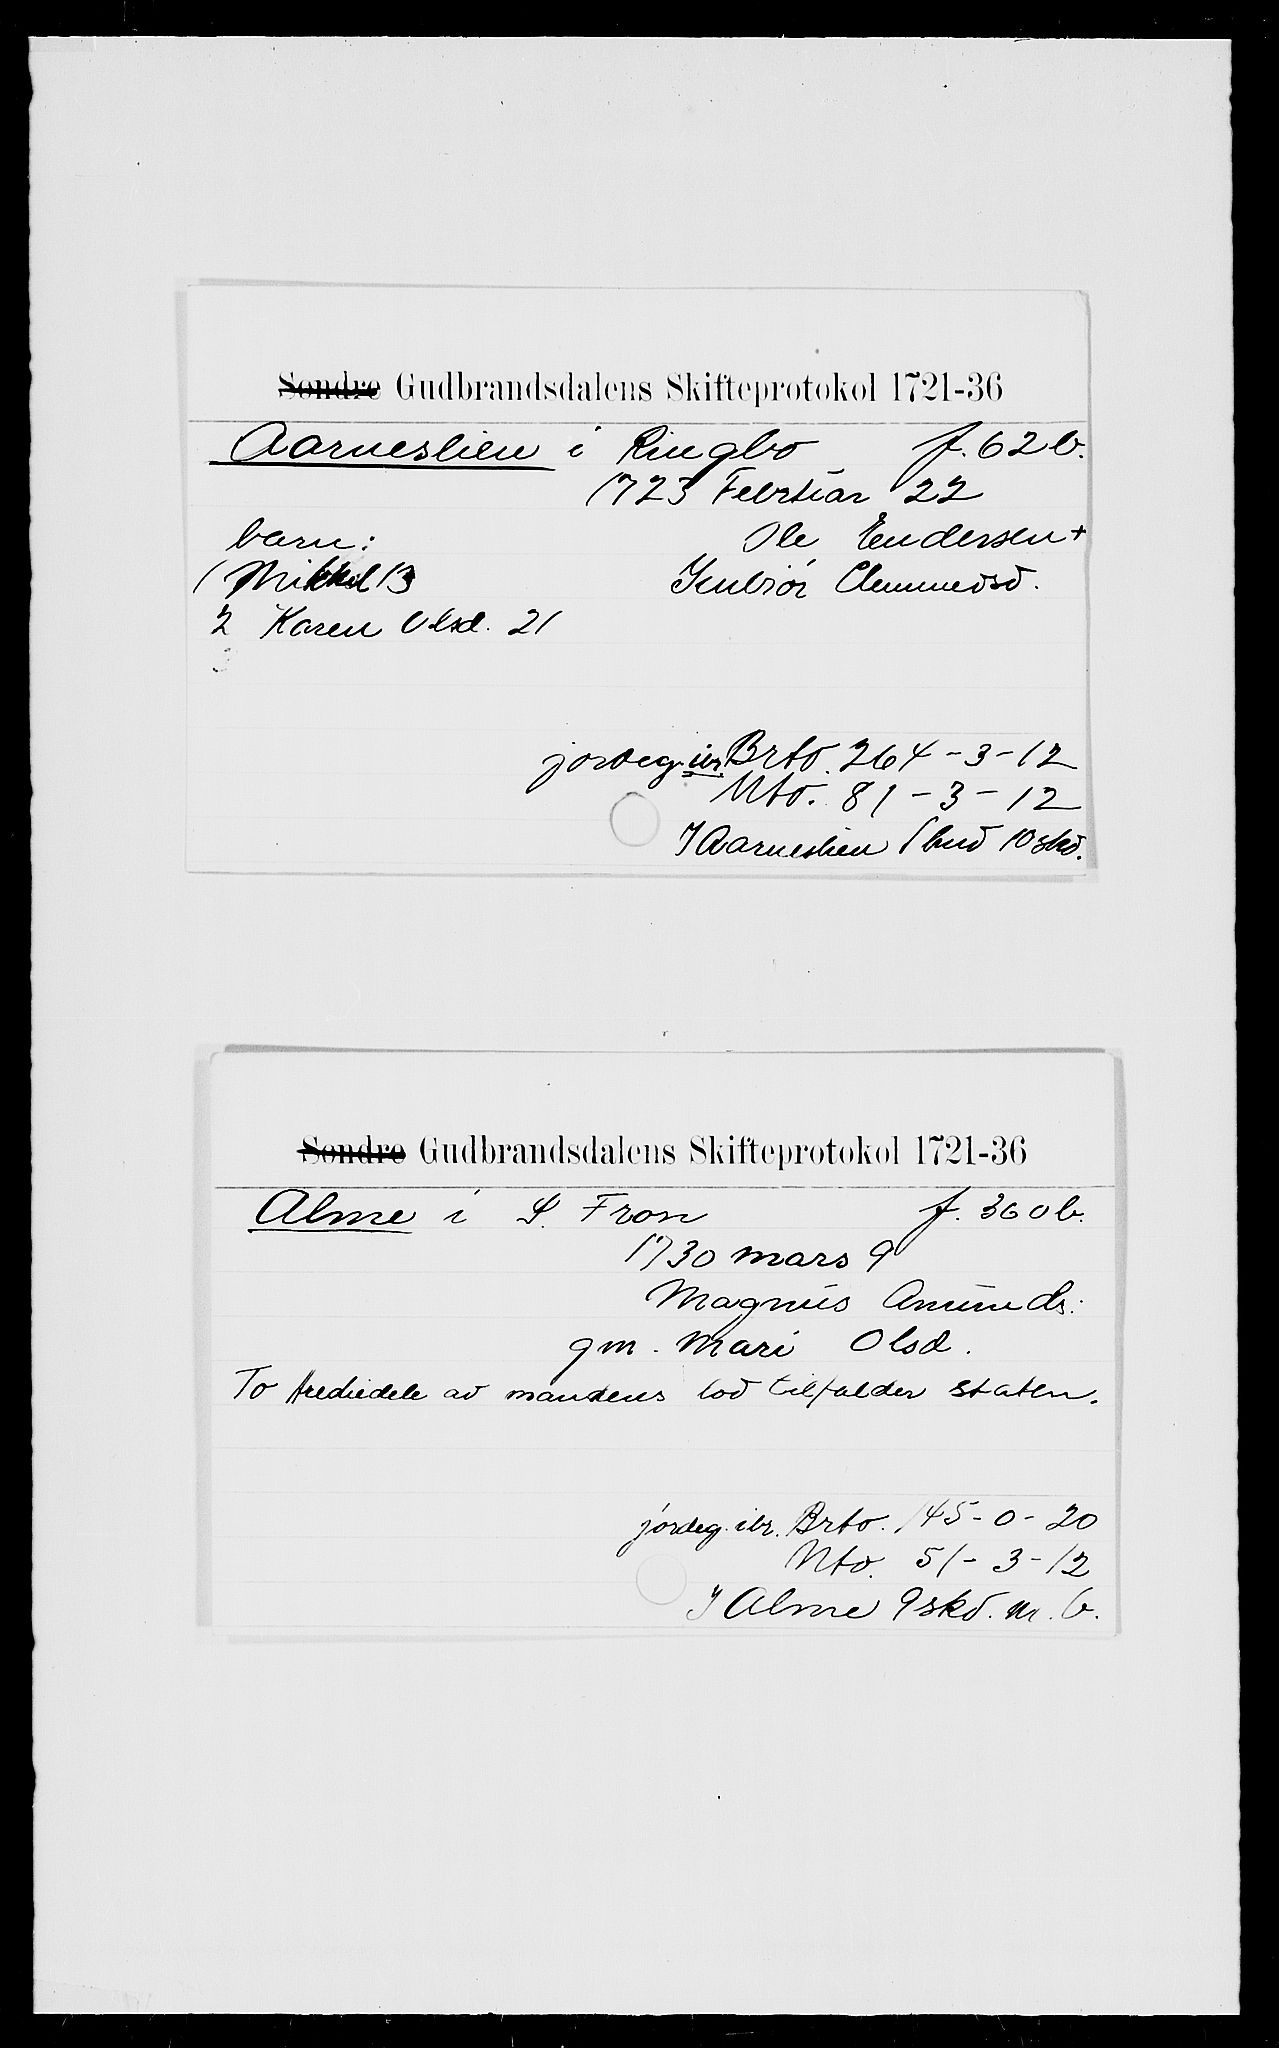 Søndre Gudbrandsdalens Skifteprotokol 1721-36
Aarneslien i Ringbo f. 62 b.
1723 Februar 22
barn: Ole Endersen +
1 Mikkel 13 Clemmedsd.
2 Karen Olsd. 21
3
jordeg. ibr. Brto. 264-3-12
Nto. 81-3-12
I Aarneslien 1 hud 10 skd.
Søndre Gudbrandsdalens Skifteprotokol 1721-36
Alme i S. Fron f. 360 b.
1730 mars 9
Magnus Amunds:
gm. Mari Olsd.
To trediedele av mandens lod tilfalder staten.
jordeg. ibr. Brto. 145-0-20
Nto. 51-3-12
I Alme 9 skd. m. b.